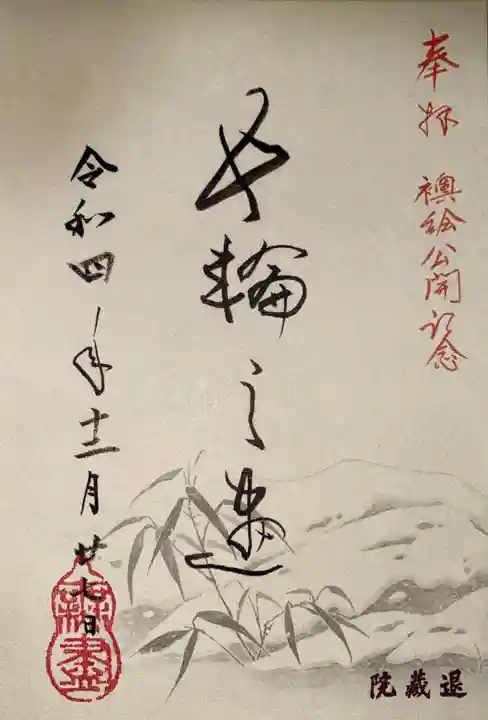 奉拝 襖絵公開記念
輪之
令和四年十二月廿七日
退藏院